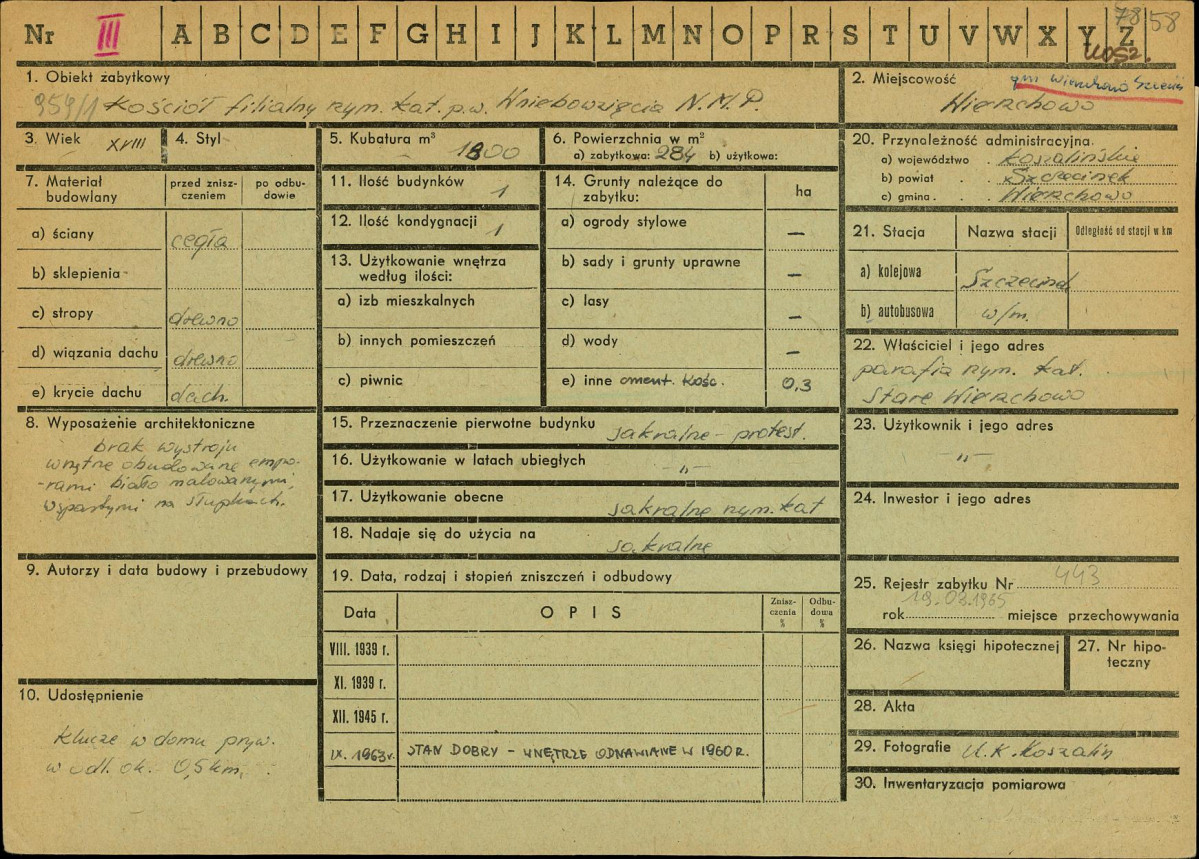 Nr III A B C D E F G H I J K L M N O P R S T U V W X Y Z 78 58
1. Obiekt zabytkowy
959/1 Kościół filialny rzym. kat. p.w. Wniebowzięcia N.M.P.
2. Miejscowość
Wierzchowo
3. Wiek XVIII
4. Styl
5. Kubatura m³ 1800
6. Powierzchnia w m²
a) zabytkowa: 284 b) użytkowa:
20. Przynależność administracyjna
a) województwo Koszalińskie
b) powiat Szczecinek
c) gmina Wierzchowo
7. Materiał budowlany
przed zniszczeniem
po odbudowie
a) ściany cegła
b) sklepienia
c) stropy drewno
d) wiązania dachu drewno
e) krycie dachu dach.
11. Ilość budynków 1
12. Ilość kondygnacji 1
13. Użytkowanie wnętrza
według ilości:
a) izb mieszkalnych
b) innych pomieszczeń
c) piwnic
14. Grunty należące do
zabytku:
ha
a) ogrody stylowe —
b) sady i grunty uprawne —
c) lasy —
d) wody —
e) inne cment. Kośc. 0,3
21. Stacja
Nazwa stacji
Odległość od stacji w km
a) kolejowa Szczecinek
b) autobusowa w/m.
22. Właściciel i jego adres
parafia rzym. kat.
Stare Wierzchowo
8. Wyposażenie architektoniczne
brak wystroju
wnętrze obudowane empo-
-rami biało malowanymi,
wspartymi na słupkach.
15. Przeznaczenie pierwotne budynku sakralne - protest.
16. Użytkowanie w latach ubiegłych -"-
17. Użytkowanie obecne sakralne rzym. kat
18. Nadaje się do użycia na sakralne
23. Użytkownik i jego adres
-"-
24. Inwestor i jego adres
9. Autorzy i data budowy i przebudowy
19. Data, rodzaj i stopień zniszczeń i odbudowy
Data
OPIS
Zniszczenia %
Odbudowa %
VIII. 1939 r.
XI. 1939 r.
XII. 1945 r.
IX. 1963 r. STAN DOBRY - WNĘTRZE ODNAWIANE W 1960 R.
25. Rejestr zabytku Nr 443
rok 19.02.1965 miejsce przechowywania
26. Nazwa księgi hipotecznej
27. Nr hipoteczny
28. Akta
29. Fotografie U.K. Koszalin
30. Inwentaryzacja pomiarowa
10. Udostępnienie
Klucze w domu pryw.
w odl. ok. 0,5 km.